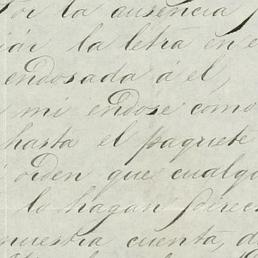 Por la ausencia
la letra en e
endosada á el,
mi endose como
hasta el paquete
orden que cualq
lo hagan direc
nuestra cuenta, d